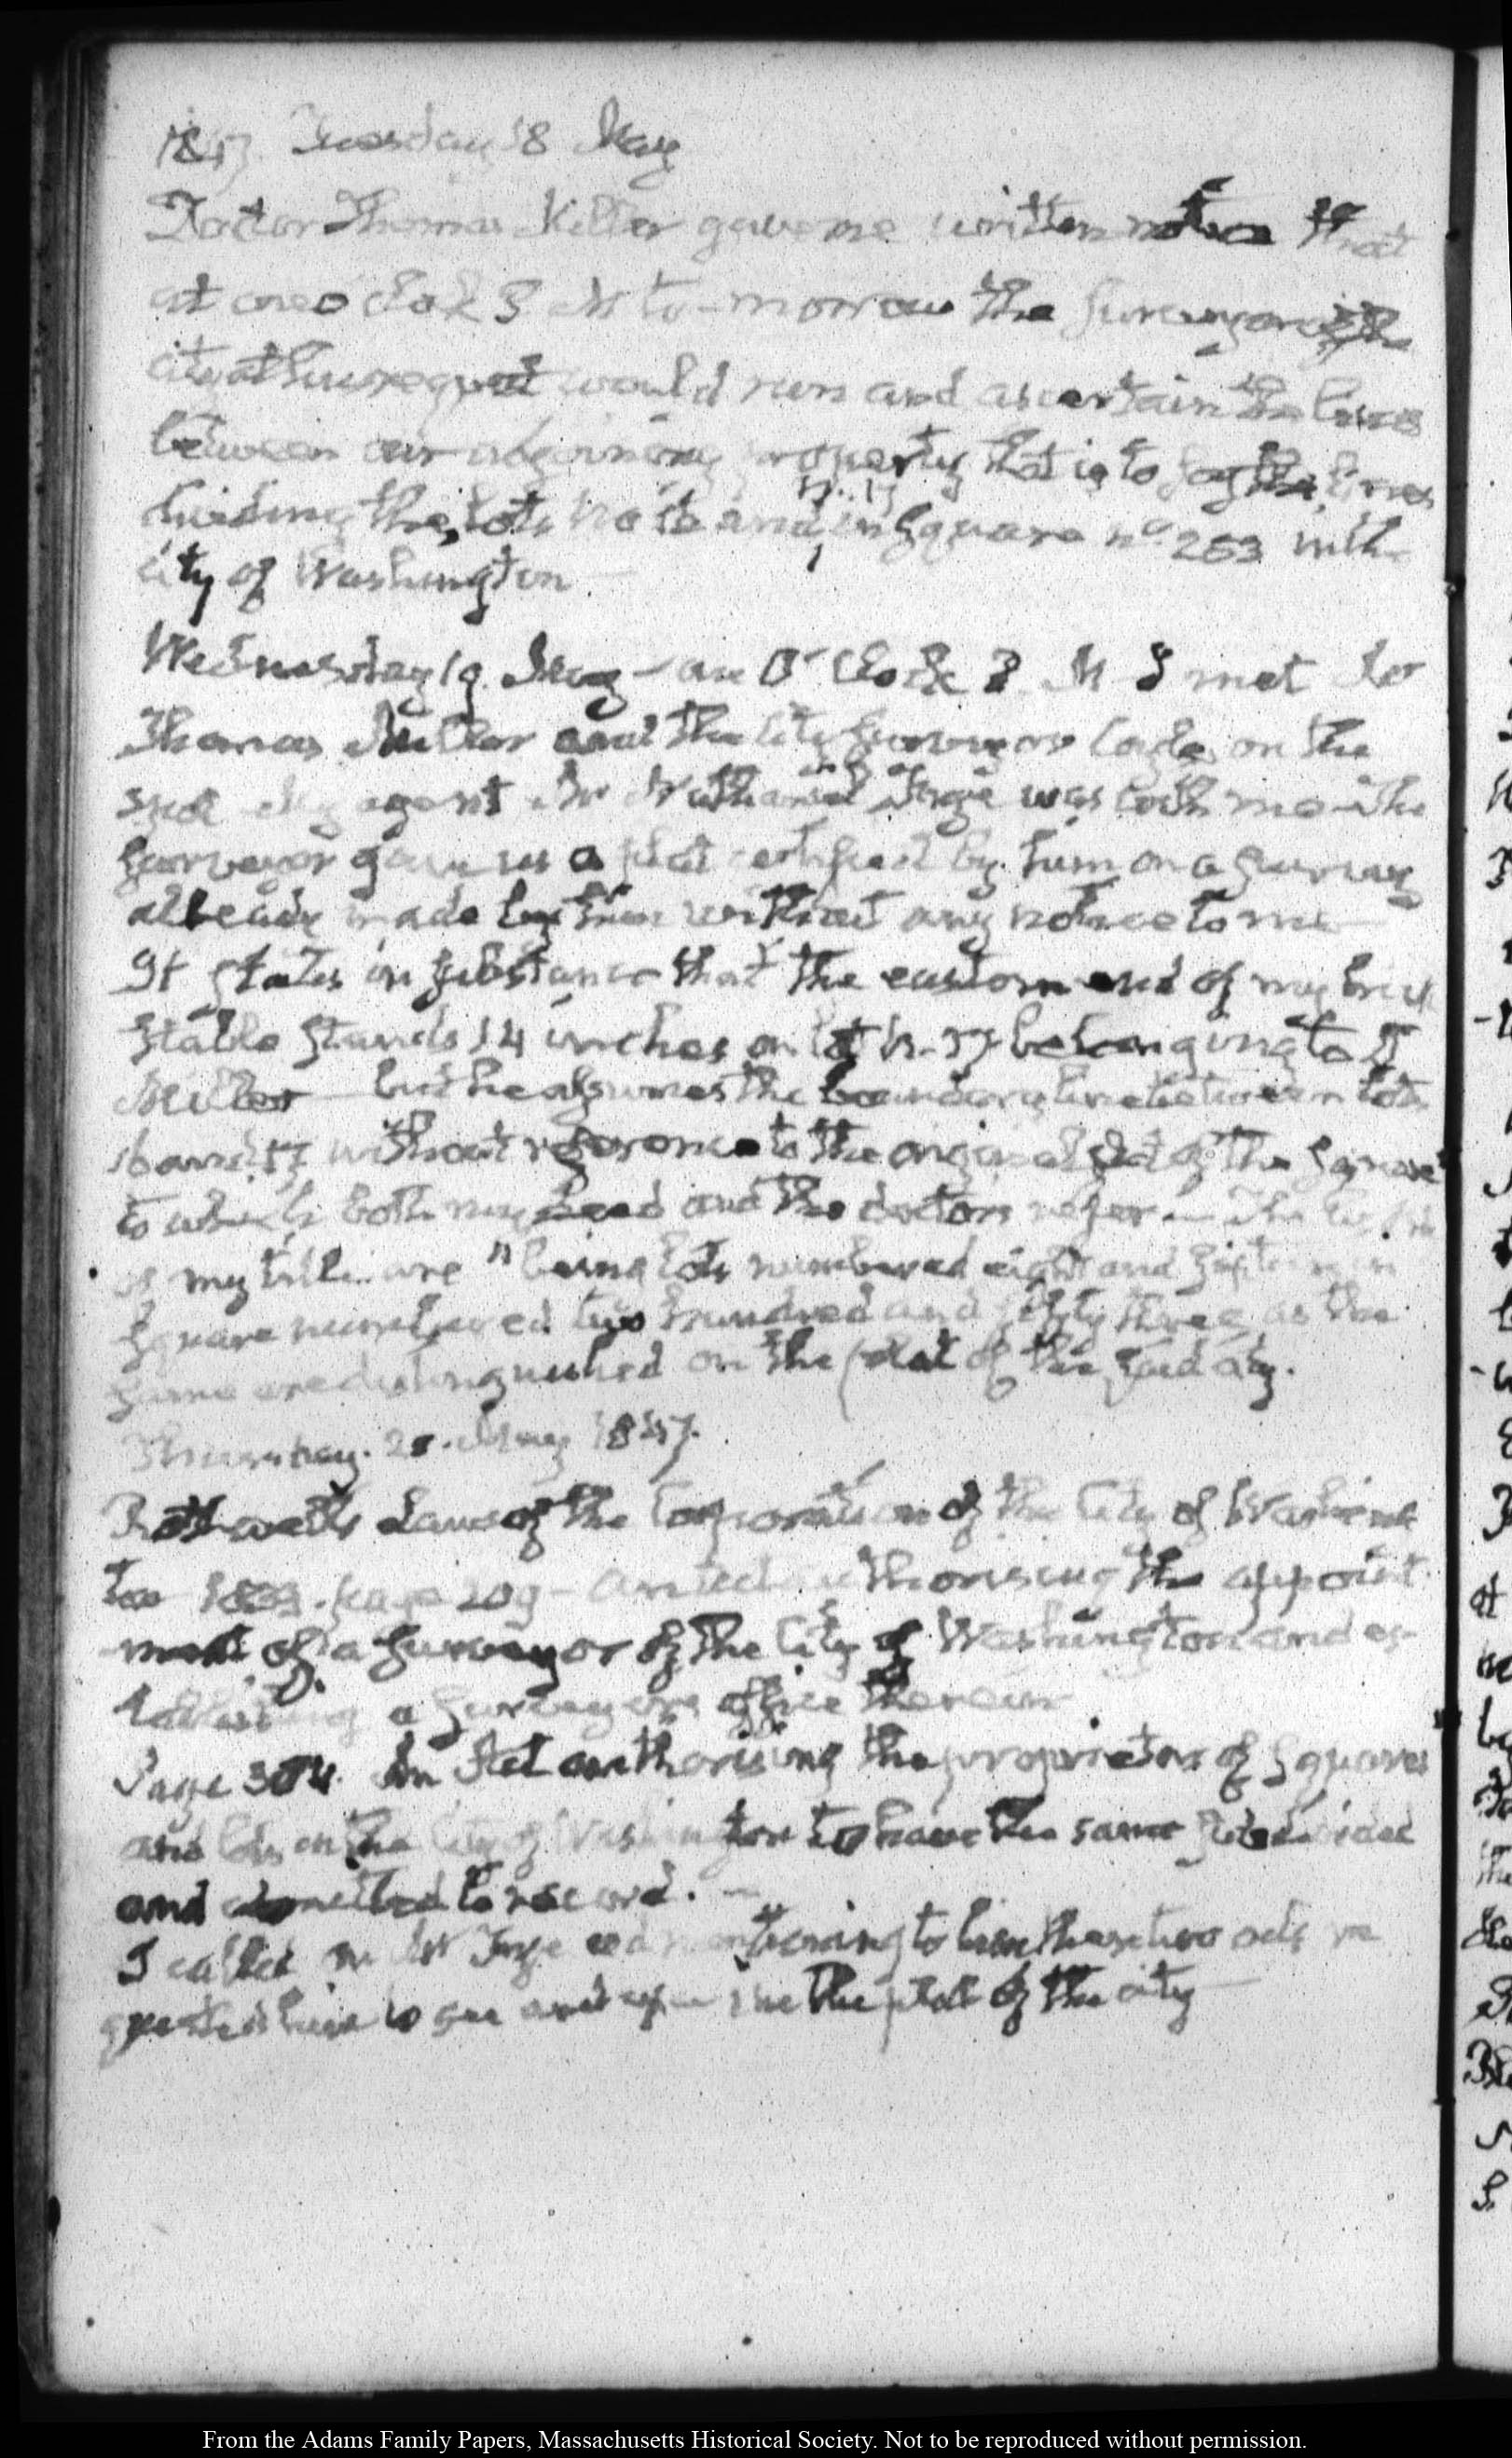 1847. Tuesday 18 May
Doctor Thomas Miller gave me written notice that
at one o'clock P M to-morrow the Surveyor of the
city at his request would run and ascertain the lines
between our adjoining property that is to say the lines
dividing the lots No 16 and N. 17 in Square no. 253 in the
city of Washington —
Wednesday 19. May — one O'Clock P. M I met Dr
Thomas Miller and the City Surveyor on the
spot My agent Mr Nathaniel Frye was with me — The
Surveyor gave us a plat certified by him on a survey
already made by him without any notice to me —
It states in substance that the eastern end of my brick
stable stands 14 inches on lot N. 17 belonging to Dr
Miller — but he assumes the boundary line between lots
16 and 17 without reference to the original plat of the Square
to which both my deed and the doctors refer —
of my title are "being lots numbered eight and sixteen in
Square numbered two hundred and fifty three, as the
same are distinguished on the plat of the said city.
Thursday. 20. May 1847.
Rothwell's Laws of the Corporation of the City of Washing
ton 1833. page 209 — an act authorising the appoint-
ment of a Surveyor of the City of Washington and es-
tablishing a Surveyors office therein
Page 304. An Act authorising the proprietors of Squares
and lots in the City of Washington to have the same subdivided
and admitted to record. —
I called on Mr Frye and mentioning to him these two acts re
quested him to see and the plat of the city —
From the Adams Family Papers, Massachusetts Historical Society. Not to be reproduced without permission.